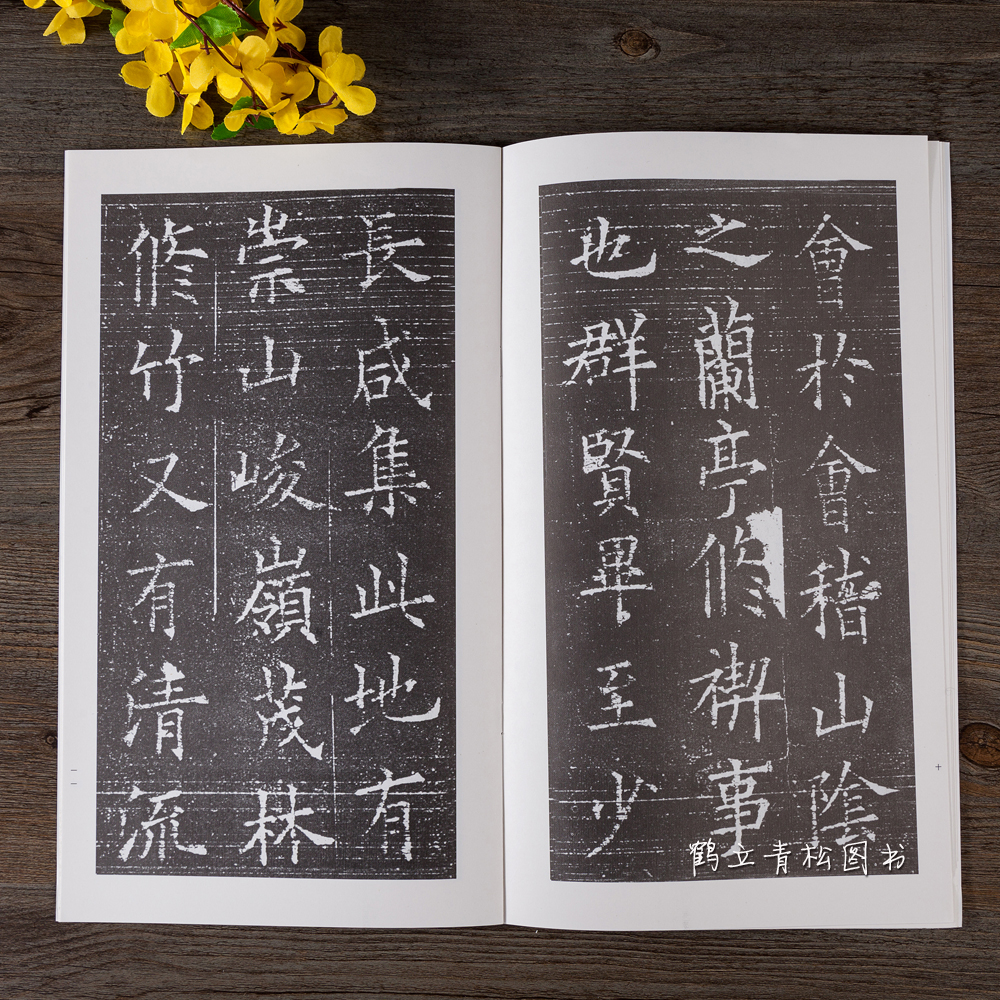 會於會稽山陰
之蘭亭修禊事
也群賢畢至少
長咸集此地有
崇山峻嶺茂林
修竹又有清流
十
一一
鹤立青松图书